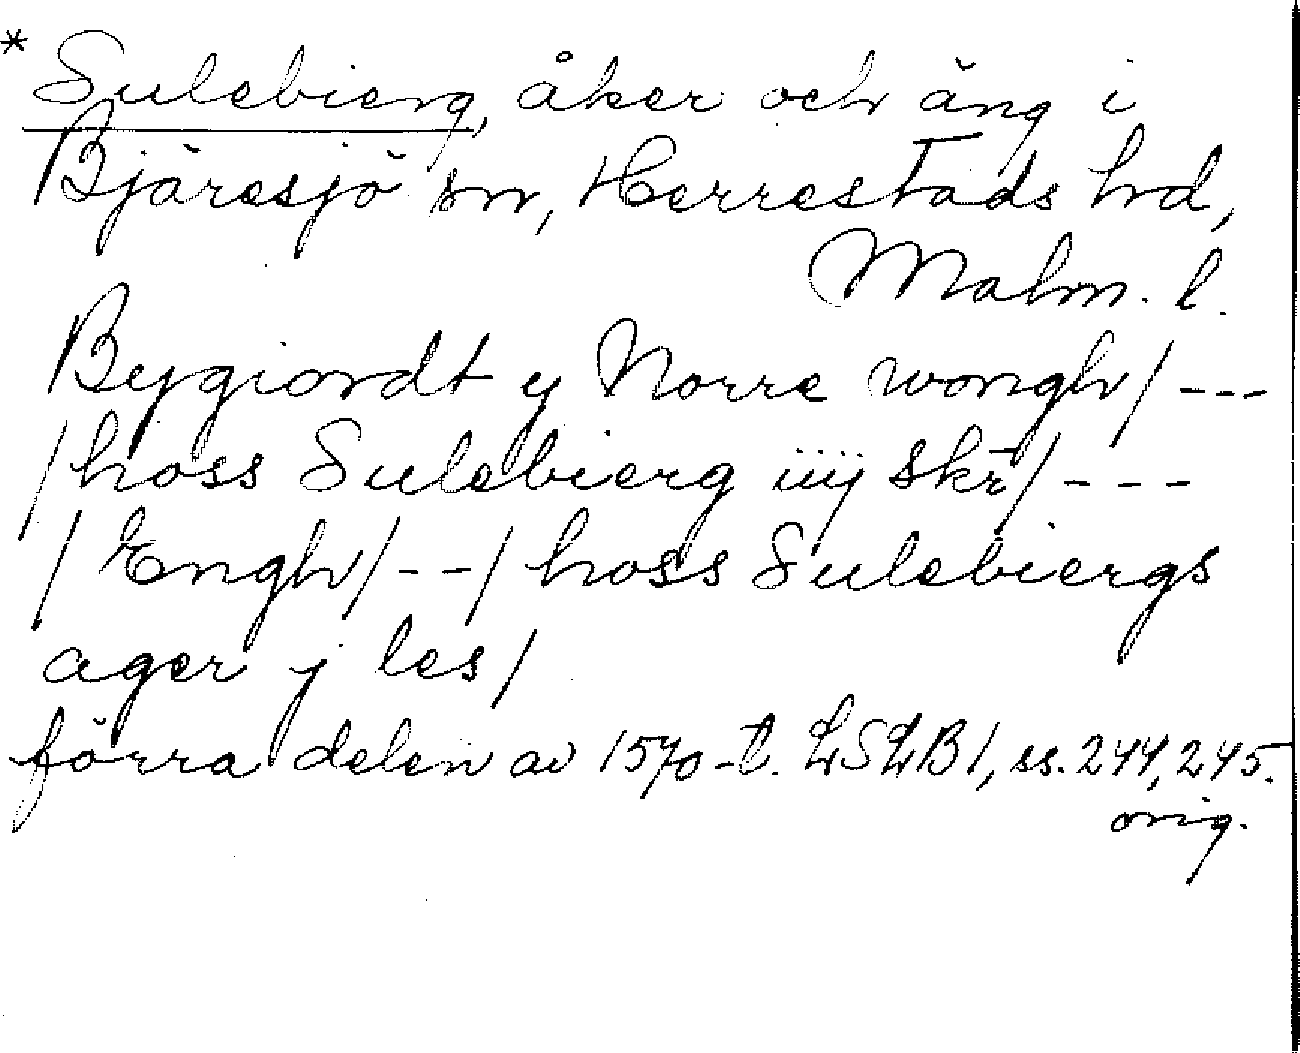 * Sulebierg, åker och äng i
Bjäresjö sn, Herrestads hd,
Malm. l.
Bygiordt y Norre wongh/ ---
/hoss Sulebierg iiij skr/ ---
/Engh/ --/ hoss Sulebiergs
ager j les/
förra delen av 1570-t. LSLB 1, ss. 244, 245.
orig.